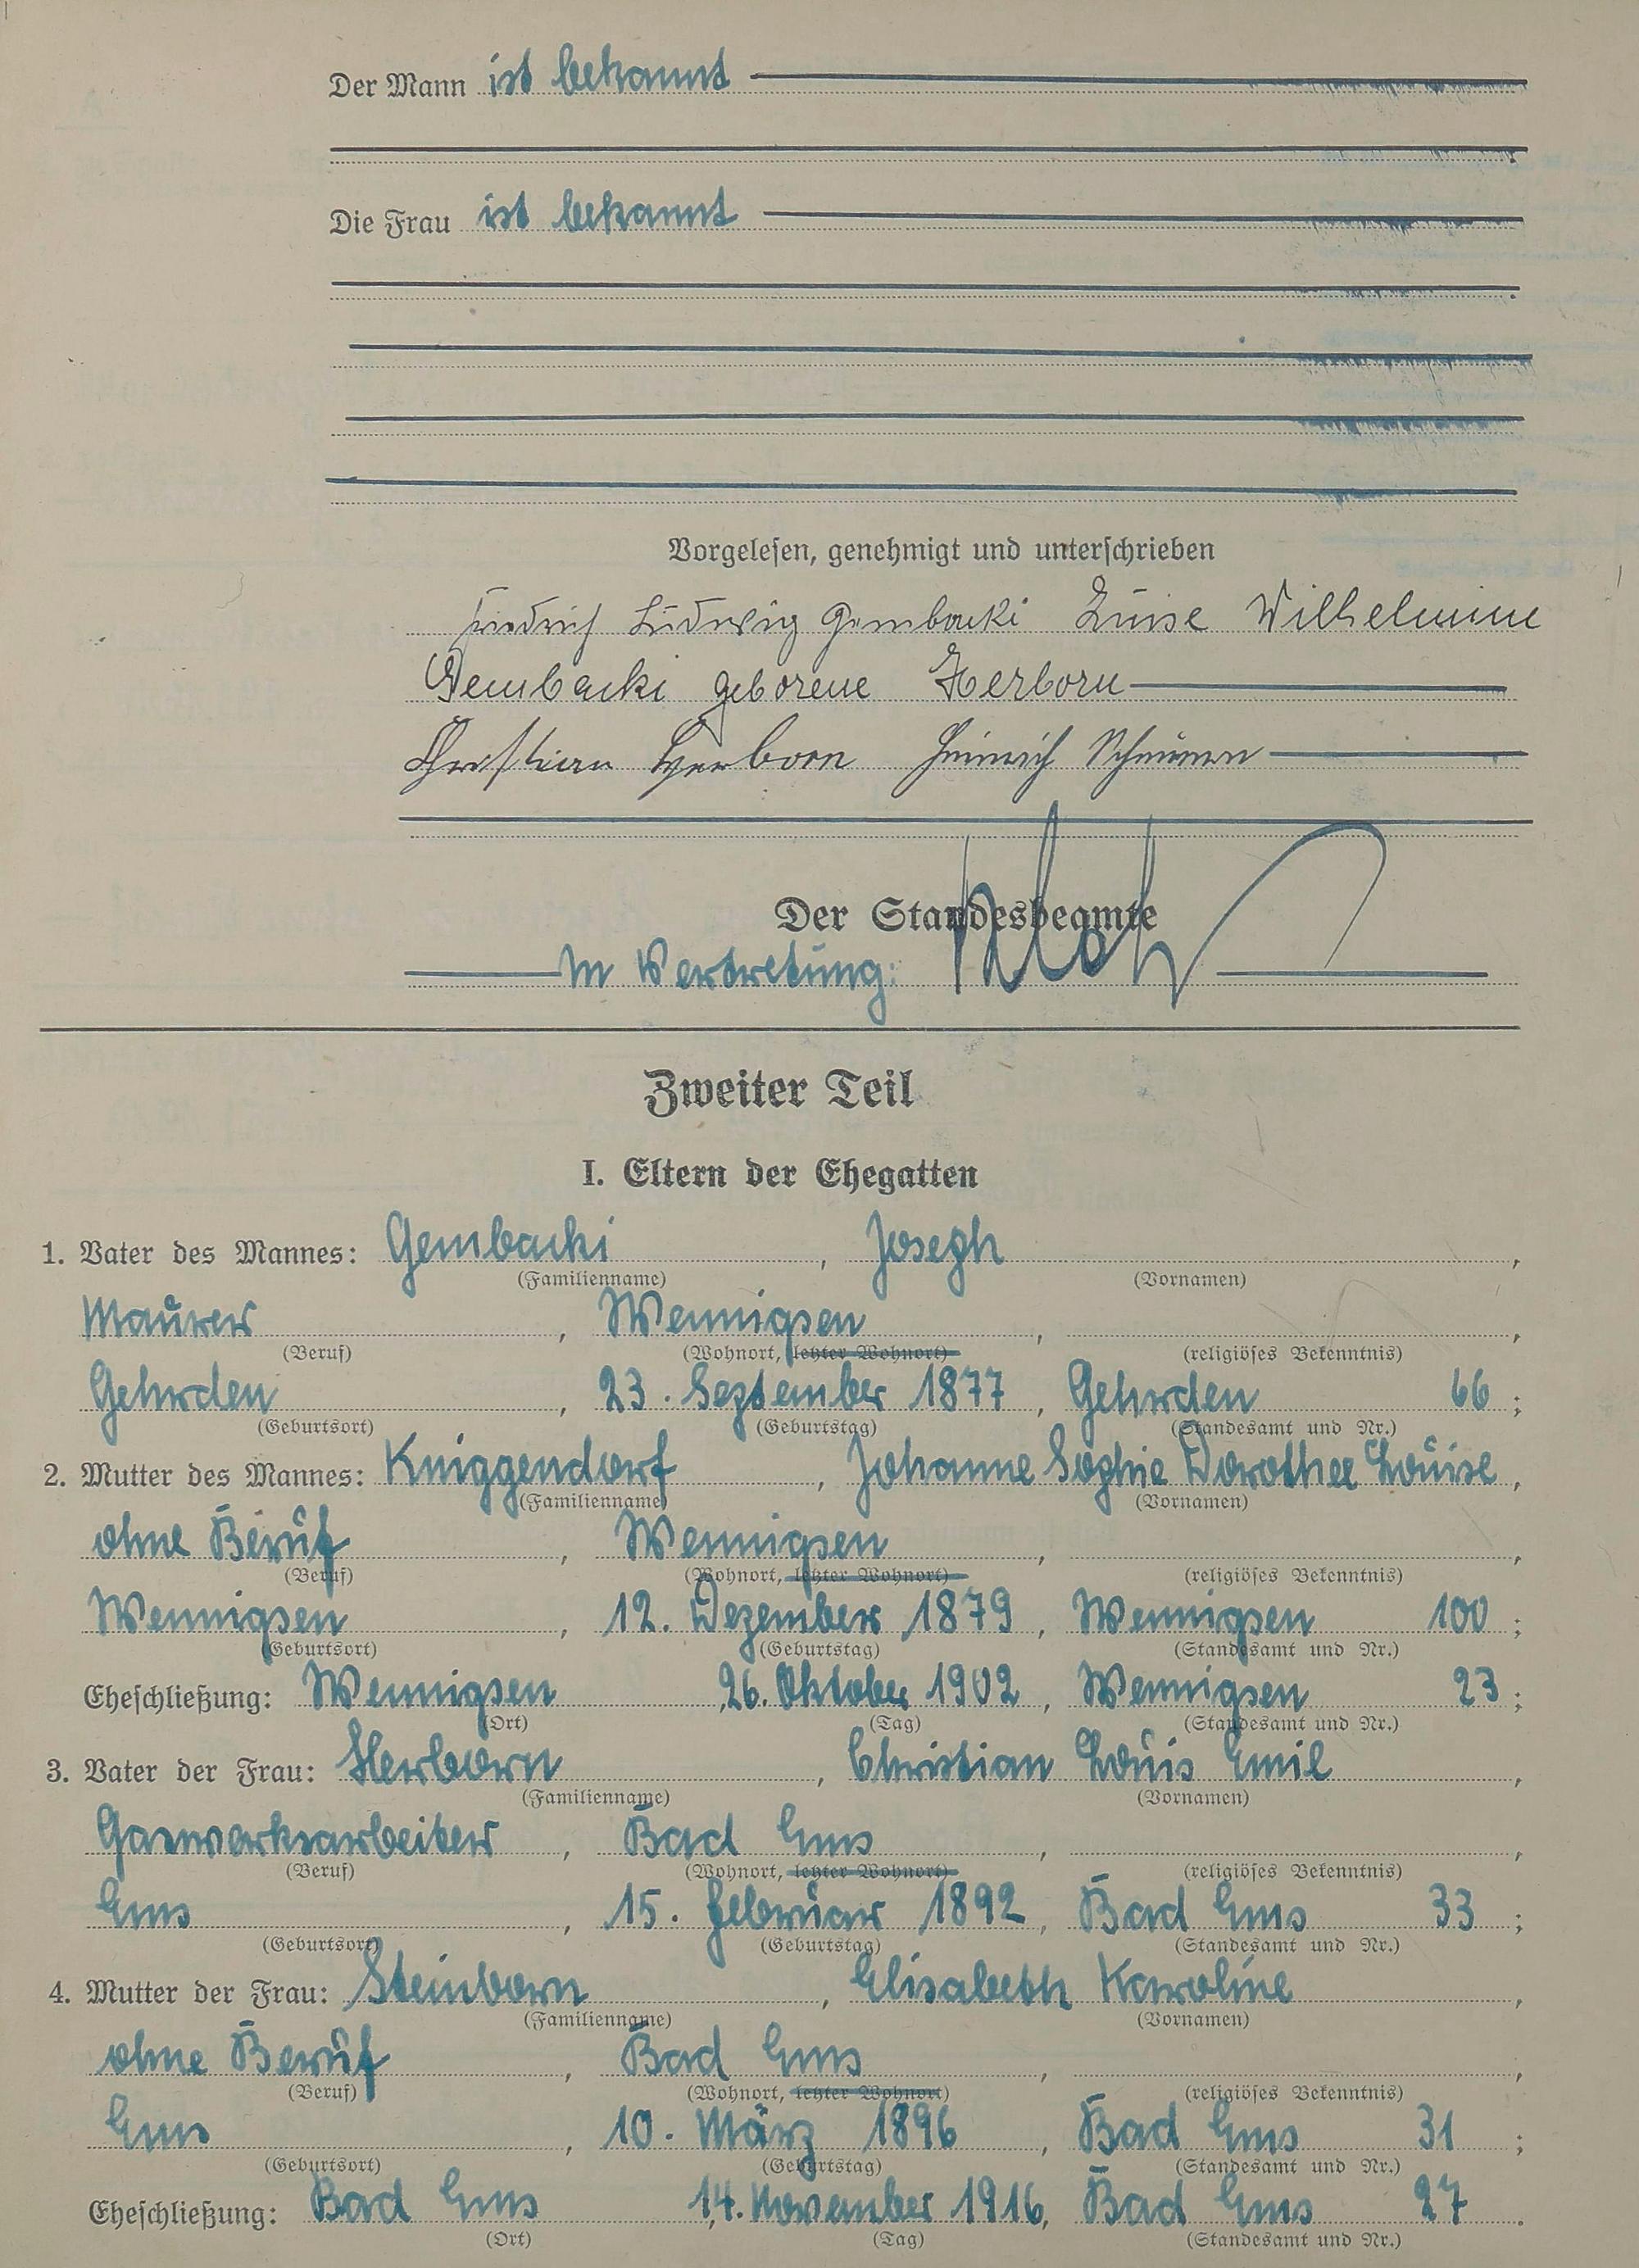 Der Mann ist bekannt
Die Frau ist bekannt
Vorgelesen, genehmigt und unterschrieben
Friedrich Ludwig Gembacki Luise Wilhelmine
Gembacki geborene Herborn
Christian Herborn Heinrich
Der Standesbeamte
In Vertretung:
Zweiter Teil
I. Eltern der Ehegatten
1. Vater des Mannes: Gembacki, Joseph,
(Familienname) (Vornamen)
Maurer, Wennigsen, ,
(Beruf) (Wohnort, letzter Wohnort) (religiöses Bekenntnis)
Gehrden, 23. September 1877, Gehrden 66;
(Geburtsort) (Geburtstag) (Standesamt und Nr.)
2. Mutter des Mannes: Kniggendorf, Johanne Sophie Dorothee Louise,
(Familienname) (Vornamen)
ohne Beruf, Wennigsen, ,
(Beruf) (Wohnort, letzter Wohnort) (religiöses Bekenntnis)
Wennigsen, 12. Dezember 1879, Wennigsen 100;
(Geburtsort) (Geburtstag) (Standesamt und Nr.)
Eheschließung: Wennigsen, 26. Oktober 1902, Wennigsen 23;
(Ort) (Tag) (Standesamt und Nr.)
3. Vater der Frau: Herborn, Christian Louis Emil,
(Familienname) (Vornamen)
Gaswerksarbeiter, Bad Ems, ,
(Beruf) (Wohnort, letzter Wohnort) (religiöses Bekenntnis)
Ems, 15. Februar 1892, Bad Ems 33;
(Geburtsort) (Geburtstag) (Standesamt und Nr.)
4. Mutter der Frau: Steinborn, Elisabeth Karoline,
(Familienname) (Vornamen)
ohne Beruf, Bad Ems, ,
(Beruf) (Wohnort, letzter Wohnort) (religiöses Bekenntnis)
Ems, 10. März 1896, Bad Ems 31;
(Geburtsort) (Geburtstag) (Standesamt und Nr.)
Eheschließung: Bad Ems, 14. November 1916, Bad Ems 27.
(Ort) (Tag) (Standesamt und Nr.)